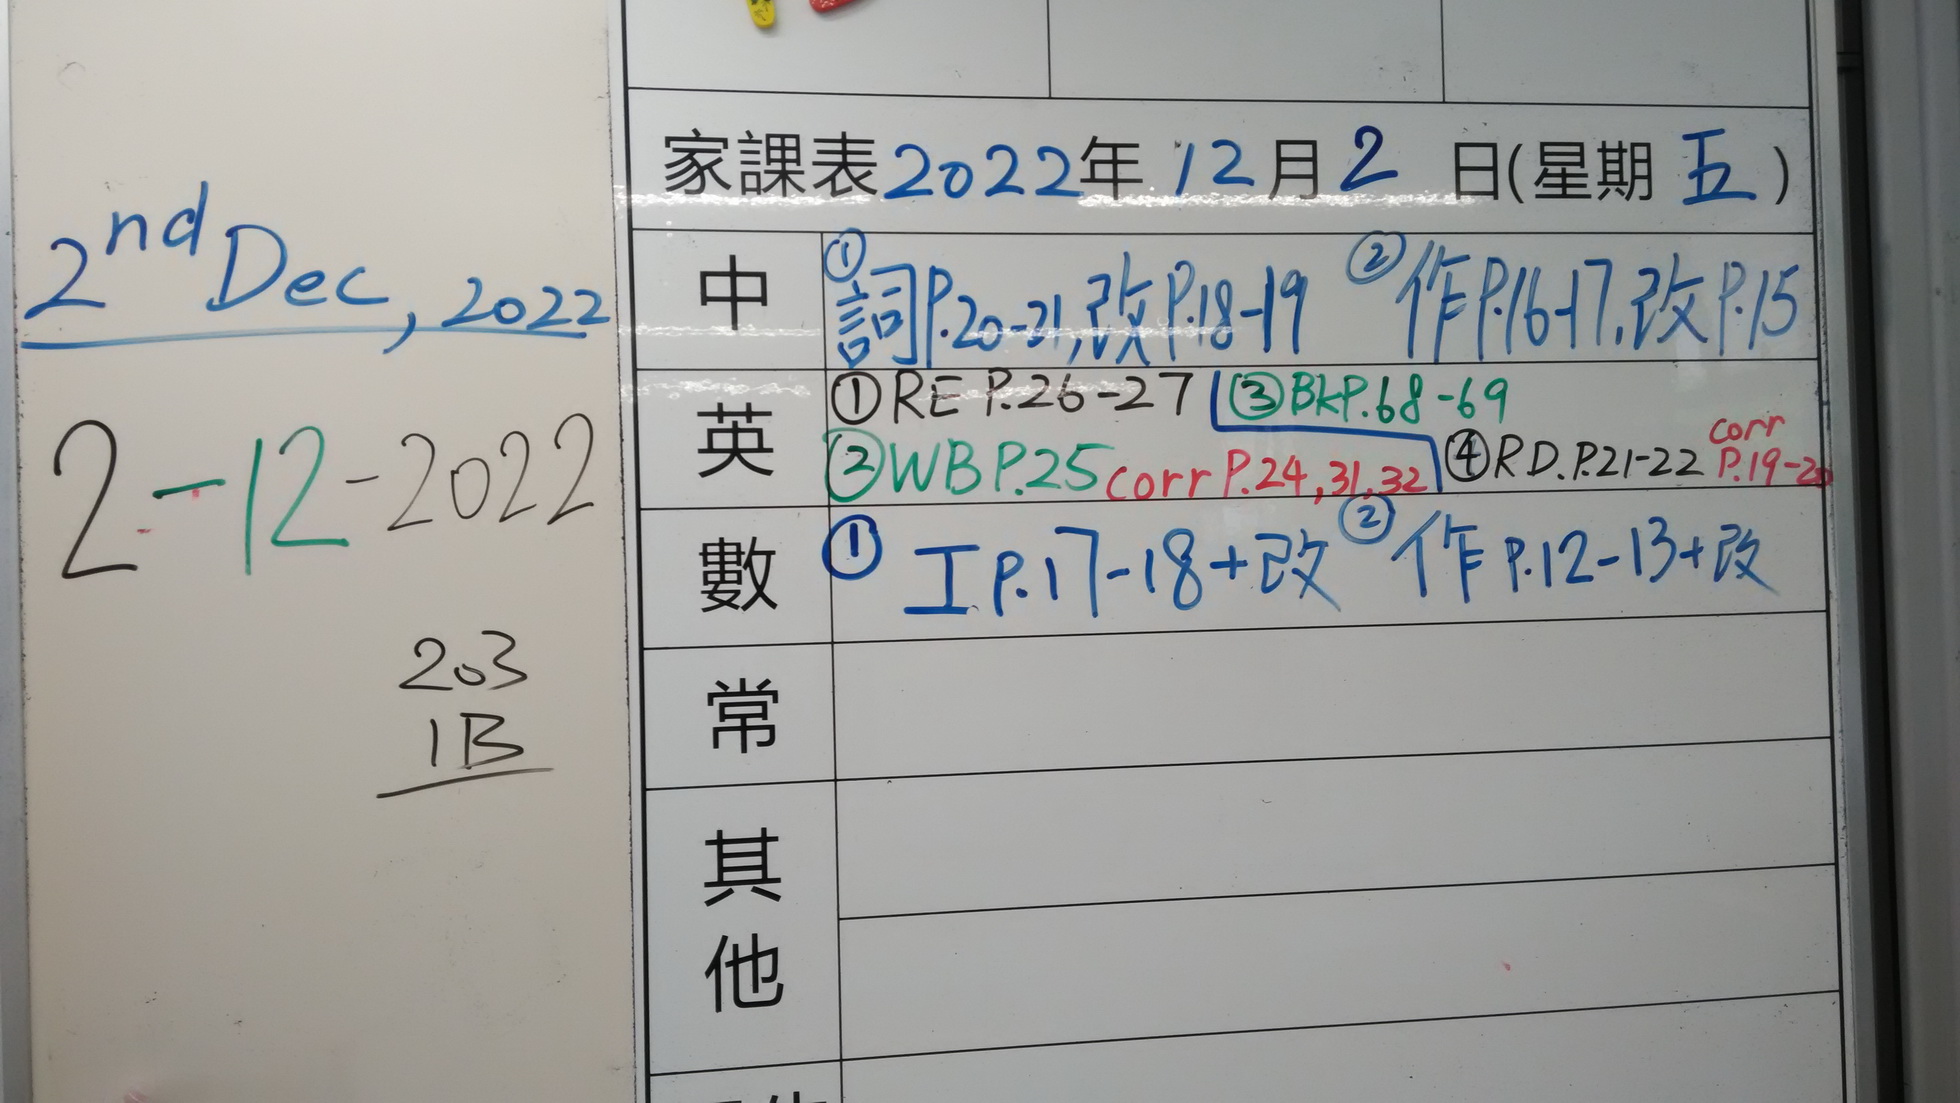 2nd Dec, 2022
2-12-2022
203
1B
家課表2022年12月2日(星期五)
中
①詞P.20-21,改P.18-19 ②作P.16-17,改P.15
英
①RE P.26-27 ③BkP.68-69
②WB P.25 corr P.24,31,32 ④RD.P.21-22 corr P.19-20
數
①工P.17-18+改 ②作P.12-13+改
常
其他